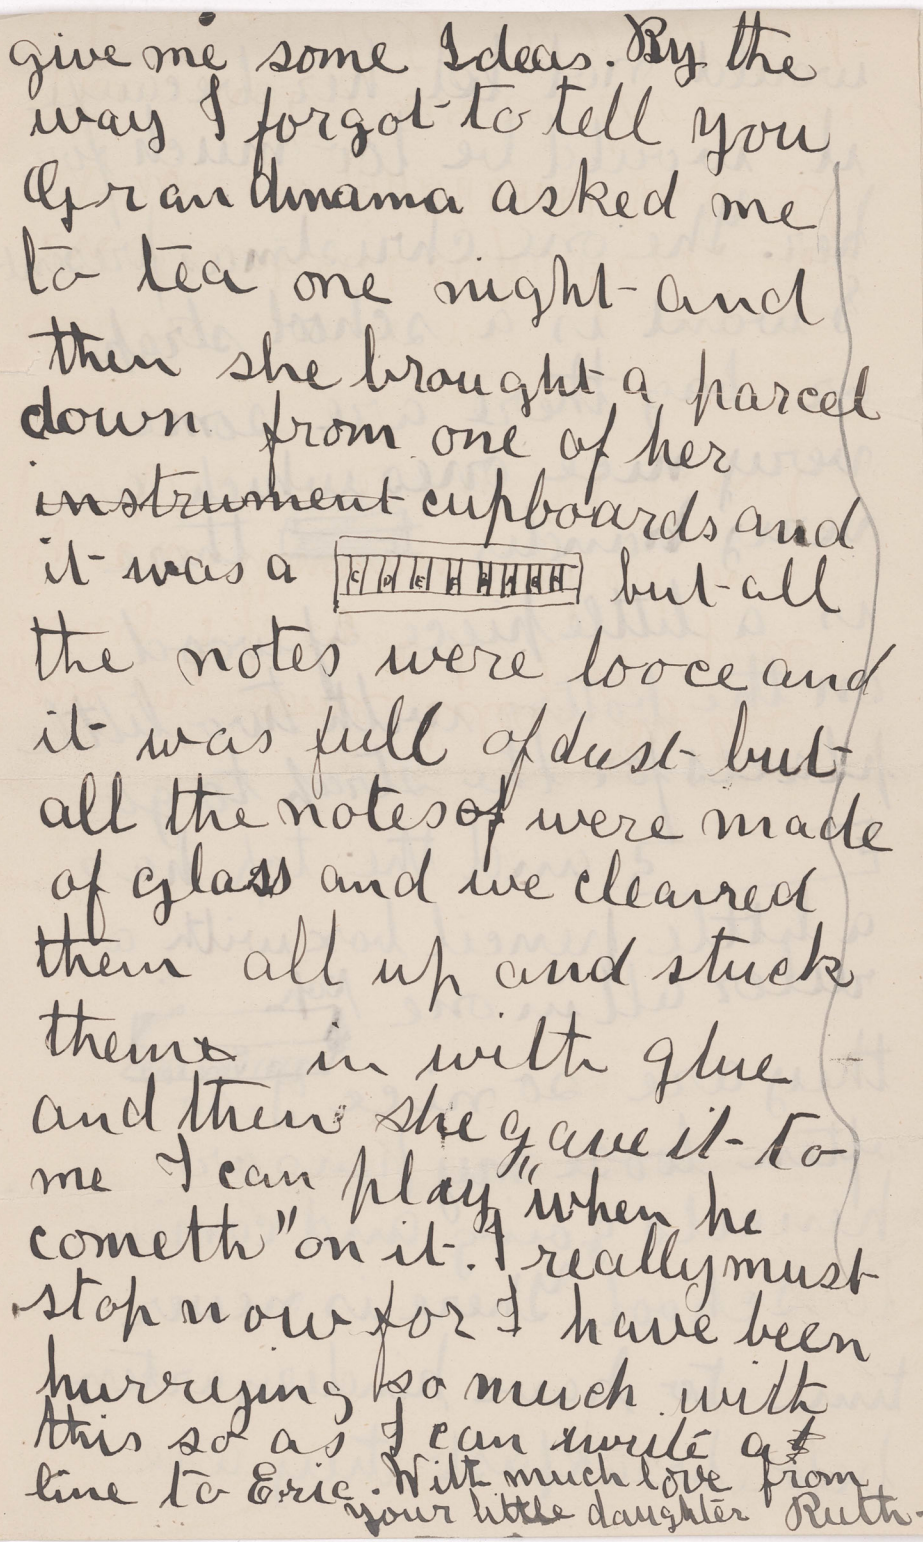 give me some Ideas. By the
way I forgot to tell you
Grandmama asked me
to tea one night and
then she brought a parcel
down from one of her
instrument cupboards and
it was a C D E F G A B C but all
the notes were looce and
it was full of dust but
all the notes of were made
of glass and we cleaned
them all up and stuck
them in with glue
and then she gave it to
me I can play "when he
cometh" on it. I really must
stop now for I have been
hurrying so much with
this so as I can write a
line to Eric. With much love from
your little daughter Ruth.